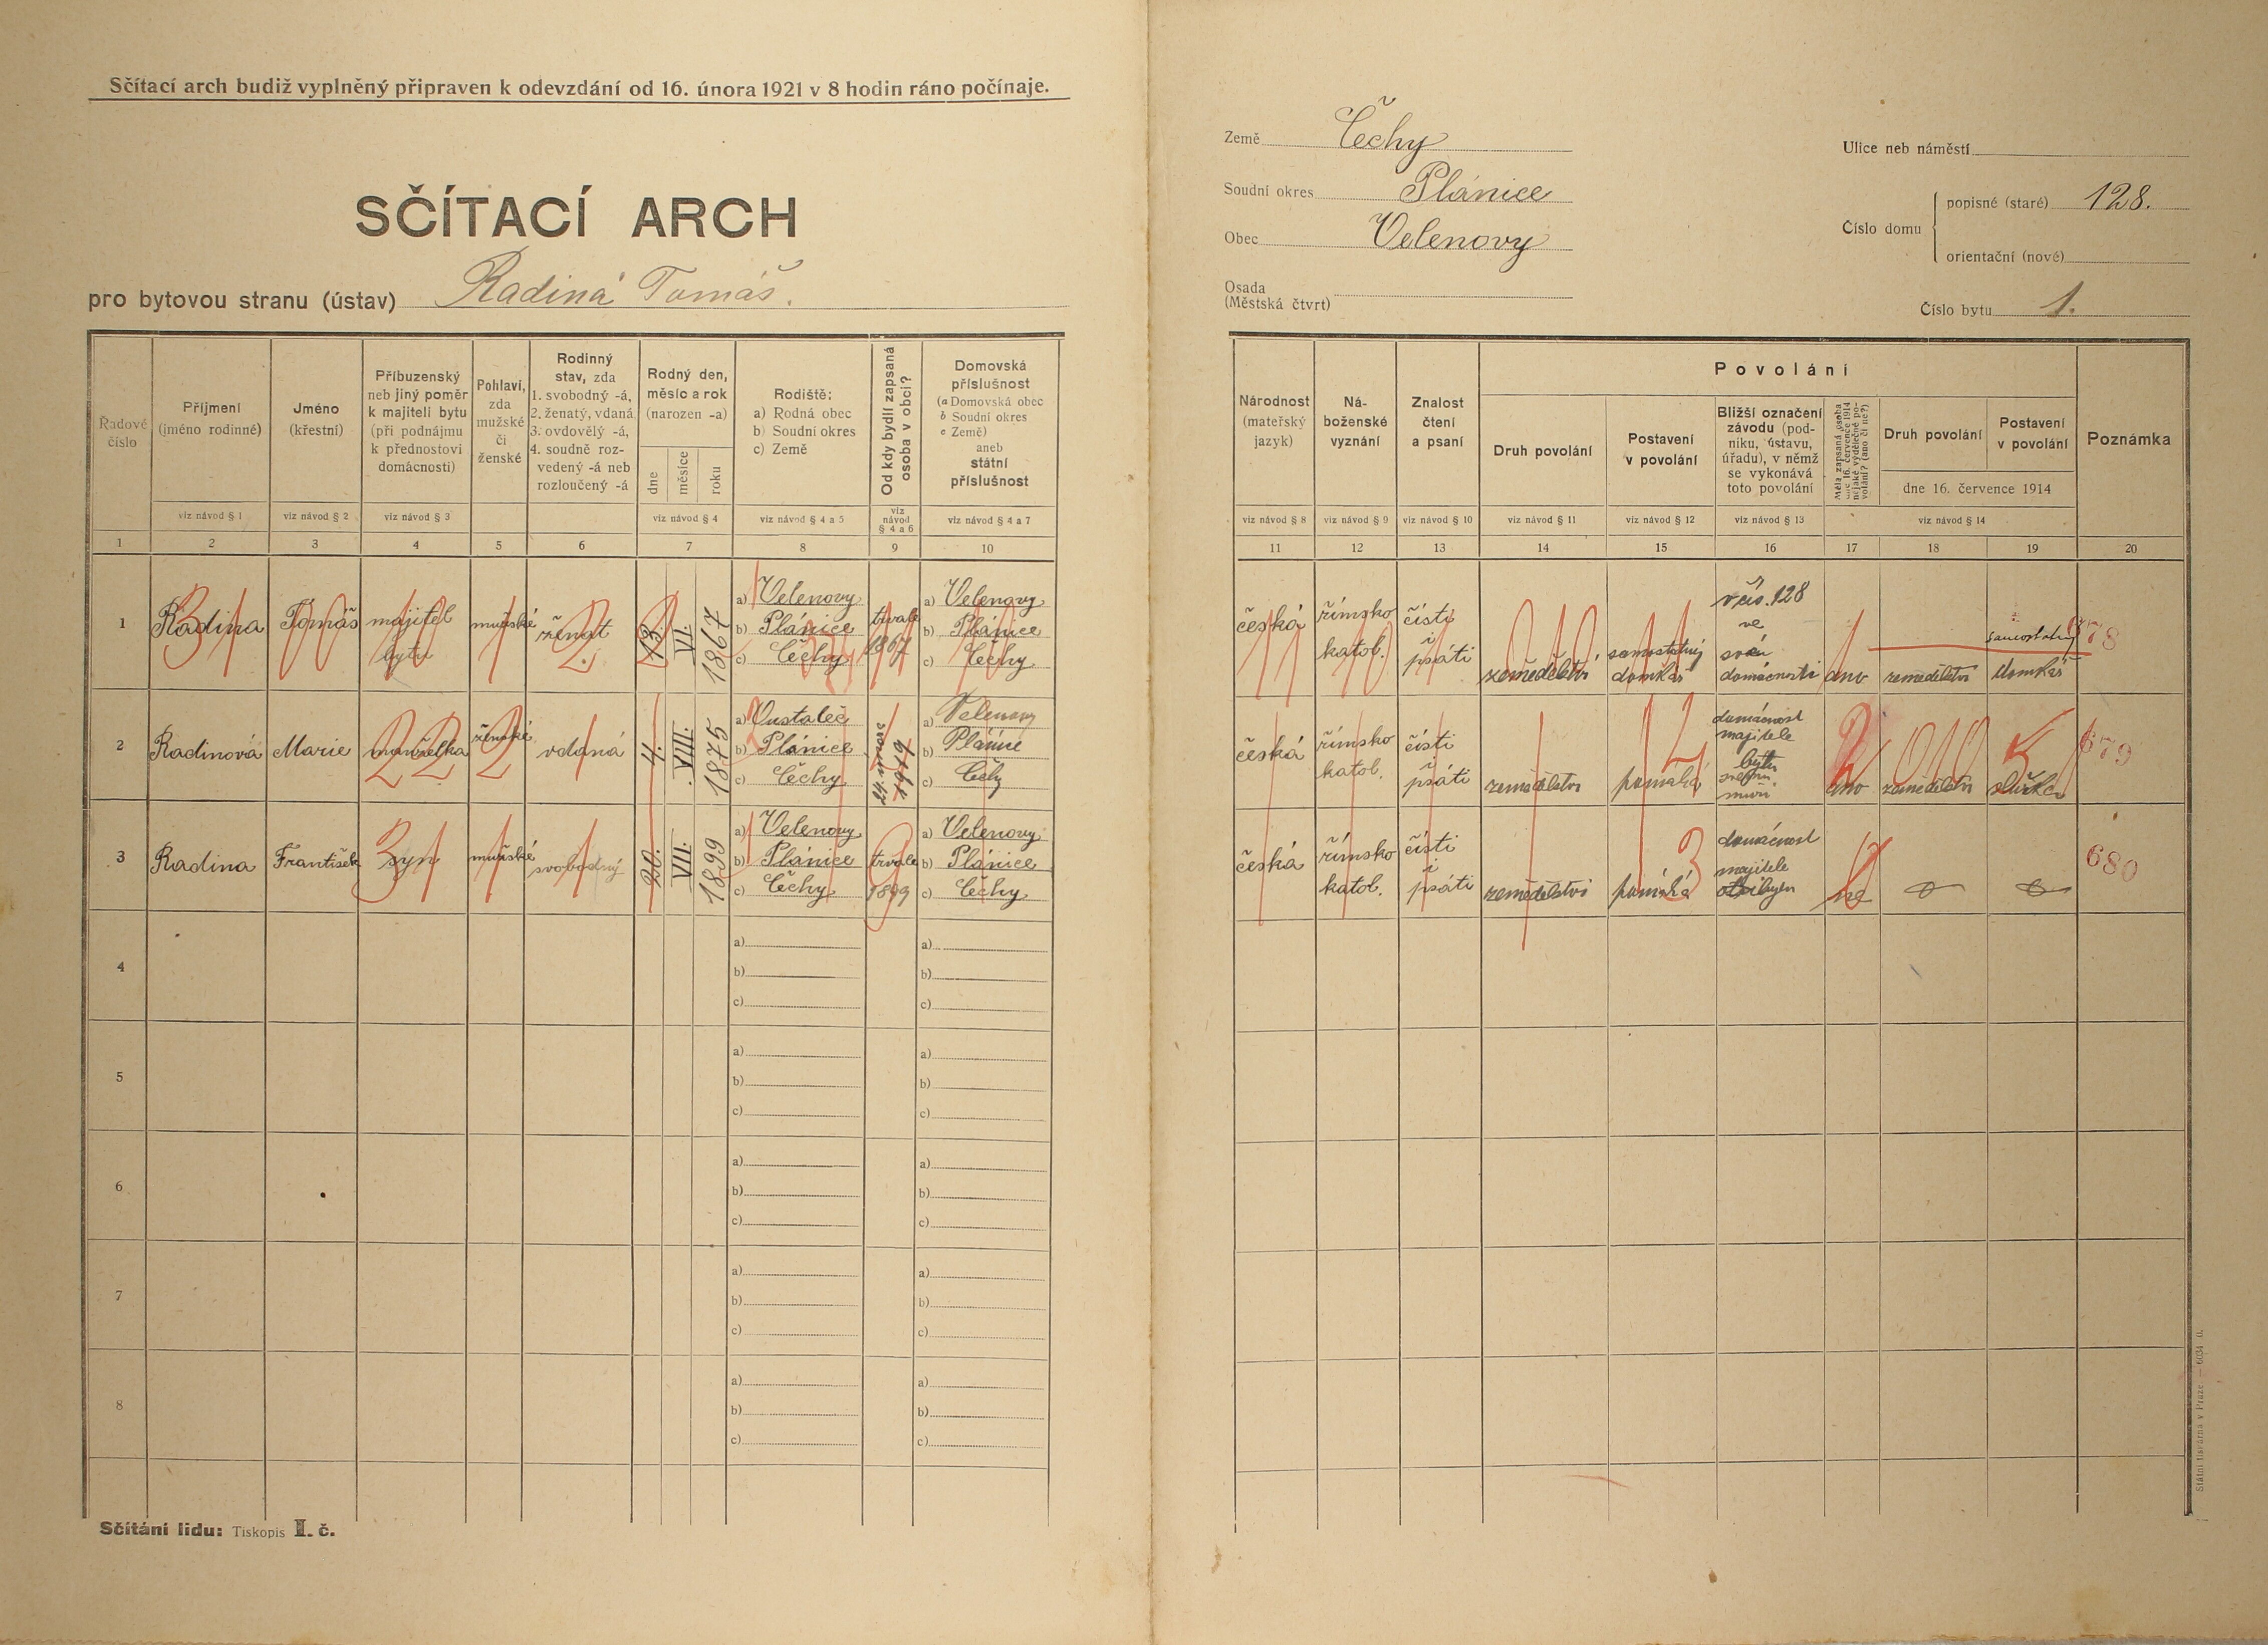 Sčítací arch budiž vyplněný připraven k odevzdání od 16. února 1921 v 8 hodin ráno počínaje.
SČÍTACÍ ARCH
pro bytovou stranu (ústav) Radina Tomáš.
Země Čechy
Soudní okres Plánice
Obec Velenovy
Osada
(Městská čtvrt)
Ulice neb náměstí
Číslo domu
popisné (staré) 128.
orientační (nové)
Číslo bytu 1.
Řadové číslo
Příjmení (jméno rodinné)
Jméno (křestní)
Příbuzenský neb jiný poměr k majiteli bytu (při podnájmu k přednostovi domácnosti)
Pohlaví, zda mužské či ženské
Rodinný stav, zda 1. svobodný -á, 2. ženatý, vdaná 3. ovdovělý -á, 4. soudně rozvedený -á neb rozloučený -á
Rodný den, měsíc a rok (narozen -a)
dne měsíce roku
Rodiště: a) Rodná obec b) Soudní okres c) Země
Od kdy bydlí zapsaná osoba v obci?
Domovská příslušnost (a Domovská obec b Soudní okres c Země) aneb státní příslušnost
viz návod § 1
viz návod § 2
viz návod § 3
viz návod § 4
viz návod § 4 a 5
viz návod § 4 a 6
viz návod § 4 a 7
1 2 3 4 5 6 7 8 9 10
Národnost (mateřský jazyk)
Náboženské vyznání
Znalost čtení a psaní
Povolání
Druh povolání
Postavení v povolání
Bližší označení závodu (podniku, ústavu, úřadu), v němž se vykonává toto povolání
Měla zapsaná osoba dne 16. července 1914 nějaké výdělečné povolání? (ano či ne?)
Druh povolání
Postavení v povolání
dne 16. července 1914
Poznámka
viz návod § 8
viz návod § 9
viz návod § 10
viz návod § 11
viz návod § 12
viz návod § 13
viz návod § 14
11 12 13 14 15 16 17 18 19 20
1 Radina Tomáš majitel bytu mužské ženat 13. VI. 1867
a) Velenovy b) Plánice c) Čechy
trvale 1867
a) Velenovy b) Plánice c) Čechy
česká římsko katol. čísti i psáti zemědělství samostatný domkář
v čís. 128 ve domácnosti
ano zemědělství samostatný domkář 678
2 Radinová Marie manželka ženské vdaná 4. VIII. 1875
a) b) Plánice c) Čechy
1919
a) Velenovy b) Plánice c) Čechy
česká římsko katol. čísti i psáti zemědělství pomáhá
domácnost majitele bytu
ano zemědělství 679
3 Radina František syn mužské svobodný 20. VII. 1899
a) Velenovy b) Plánice c) Čechy
trvale 1899
a) Velenovy b) Plánice c) Čechy
česká římsko katol. čísti i psáti zemědělství pomáhá
domácnost majitele bytu
ne 680
4 a) b) c) a) b) c)
5 a) b) c) a) b) c)
6 a) b) c) a) b) c)
7 a) b) c) a) b) c)
8 a) b) c) a) b) c)
Sčítání lidu: Tiskopis I. č.
Státní tiskárna v Praze.